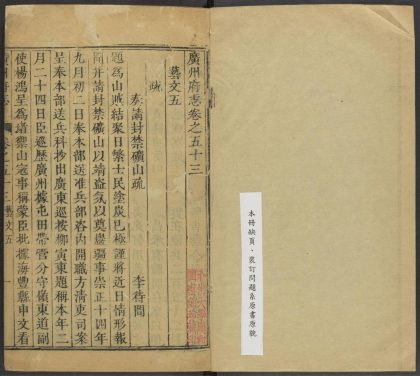 廣州府志卷之五十三
藝文五
疏
奏請封禁礦山疏
李待問
題為山賊結聚日繁士民塗炭已極謹將近日情形報
聞并請封禁礦山以靖盜氛以奠巖疆事崇正十四年
九月初二日奉本部送准兵部咨內開職方清吏司案
呈奉本部送兵科抄出廣東巡按柳寅東題稱本年二
月二十四日臣巡歷廣州據屯田帶管分守嶺東道副
使楊鴻呈為堵禦山寇事稱蒙臣批據海豐縣申文看
廣州府志
卷之五十三
藝文五
一
本冊缺頁、裝訂問題係原書原貌